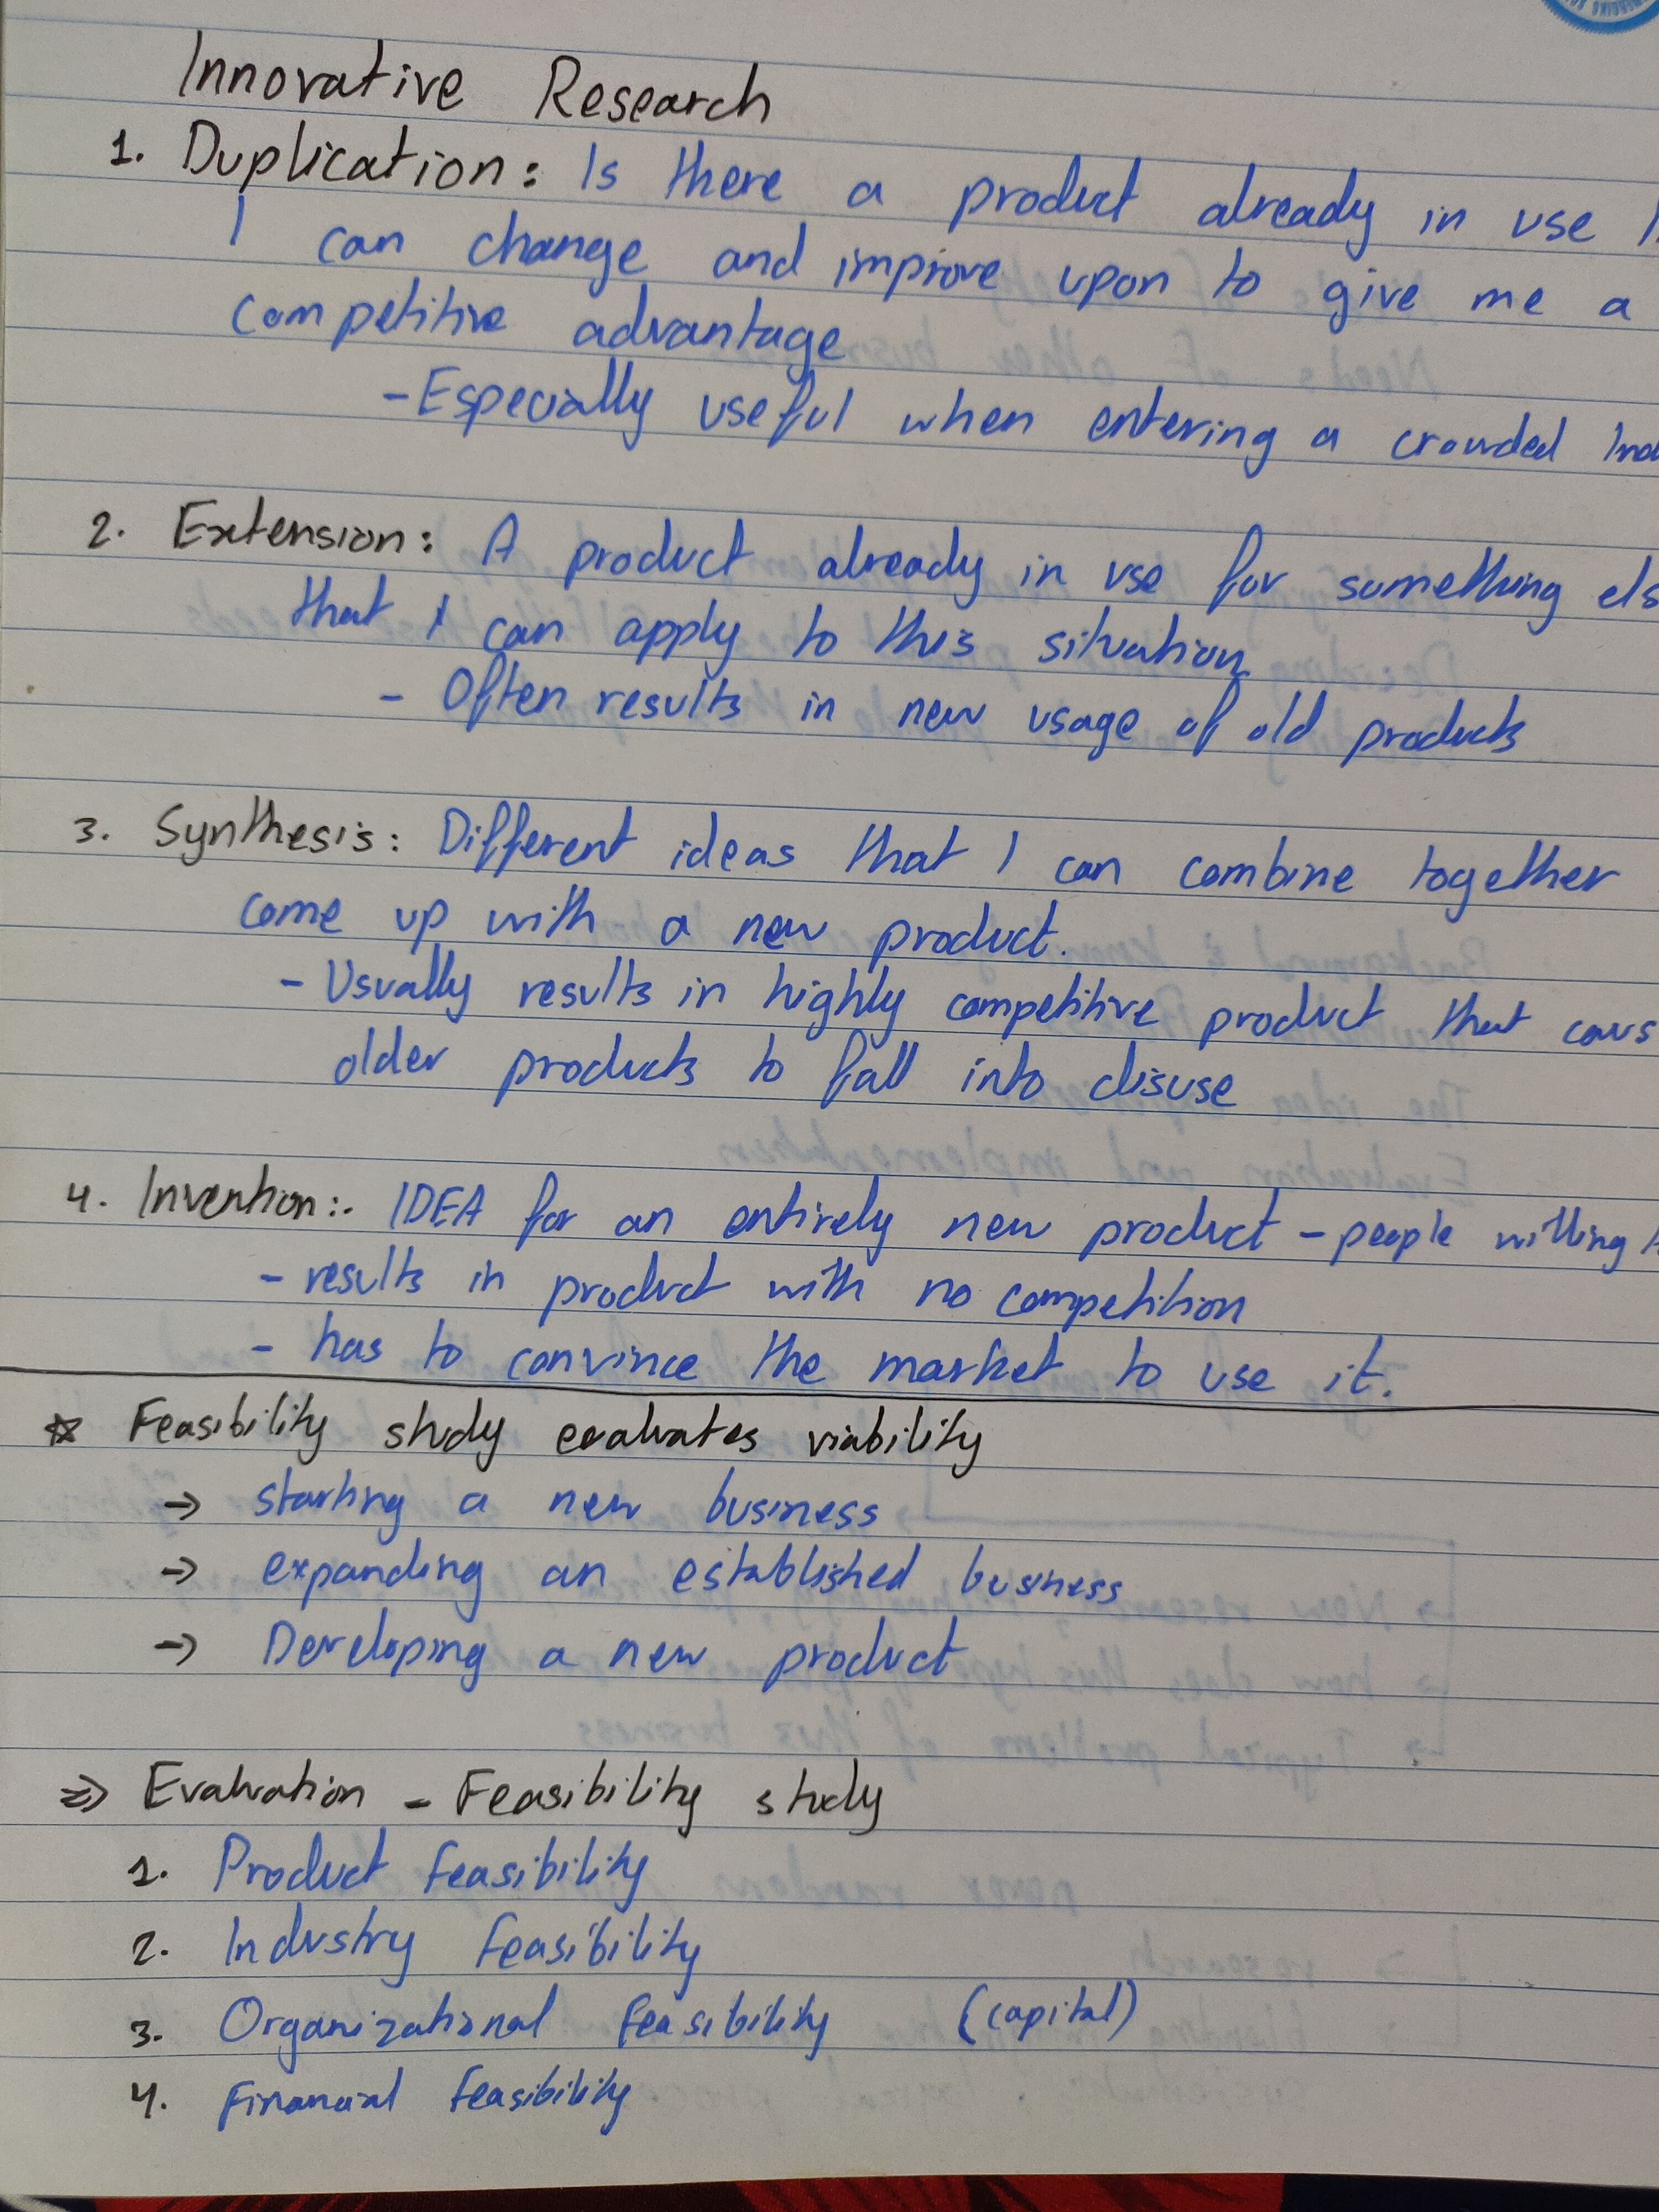 Innovative Research
1. Duplication: Is there a product already in use
I can change and improve upon to give me a
competitive advantage
- Especially useful when entering a crowded
2. Extension: A product already in use for something els
that I can apply to this situation
- Often results in new usage of old products
3. Synthesis: Different ideas that I can combine together
come up with a new product.
- Usually results in highly competitive product that caus
older products to fall into disuse
4. Invention:. IDEA for an entirely new product - people willing
- results in product with no competition
- has to convince the market to use it.
☆ Feasibility study evaluates viability
→ starting a new business
→ expanding an established business
→ Developing a new product
⇒ Evaluation - Feasibility study
1. Product feasibility
2. Industry feasibility
3. Organizational feasibility (capital)
4. Financial feasibility